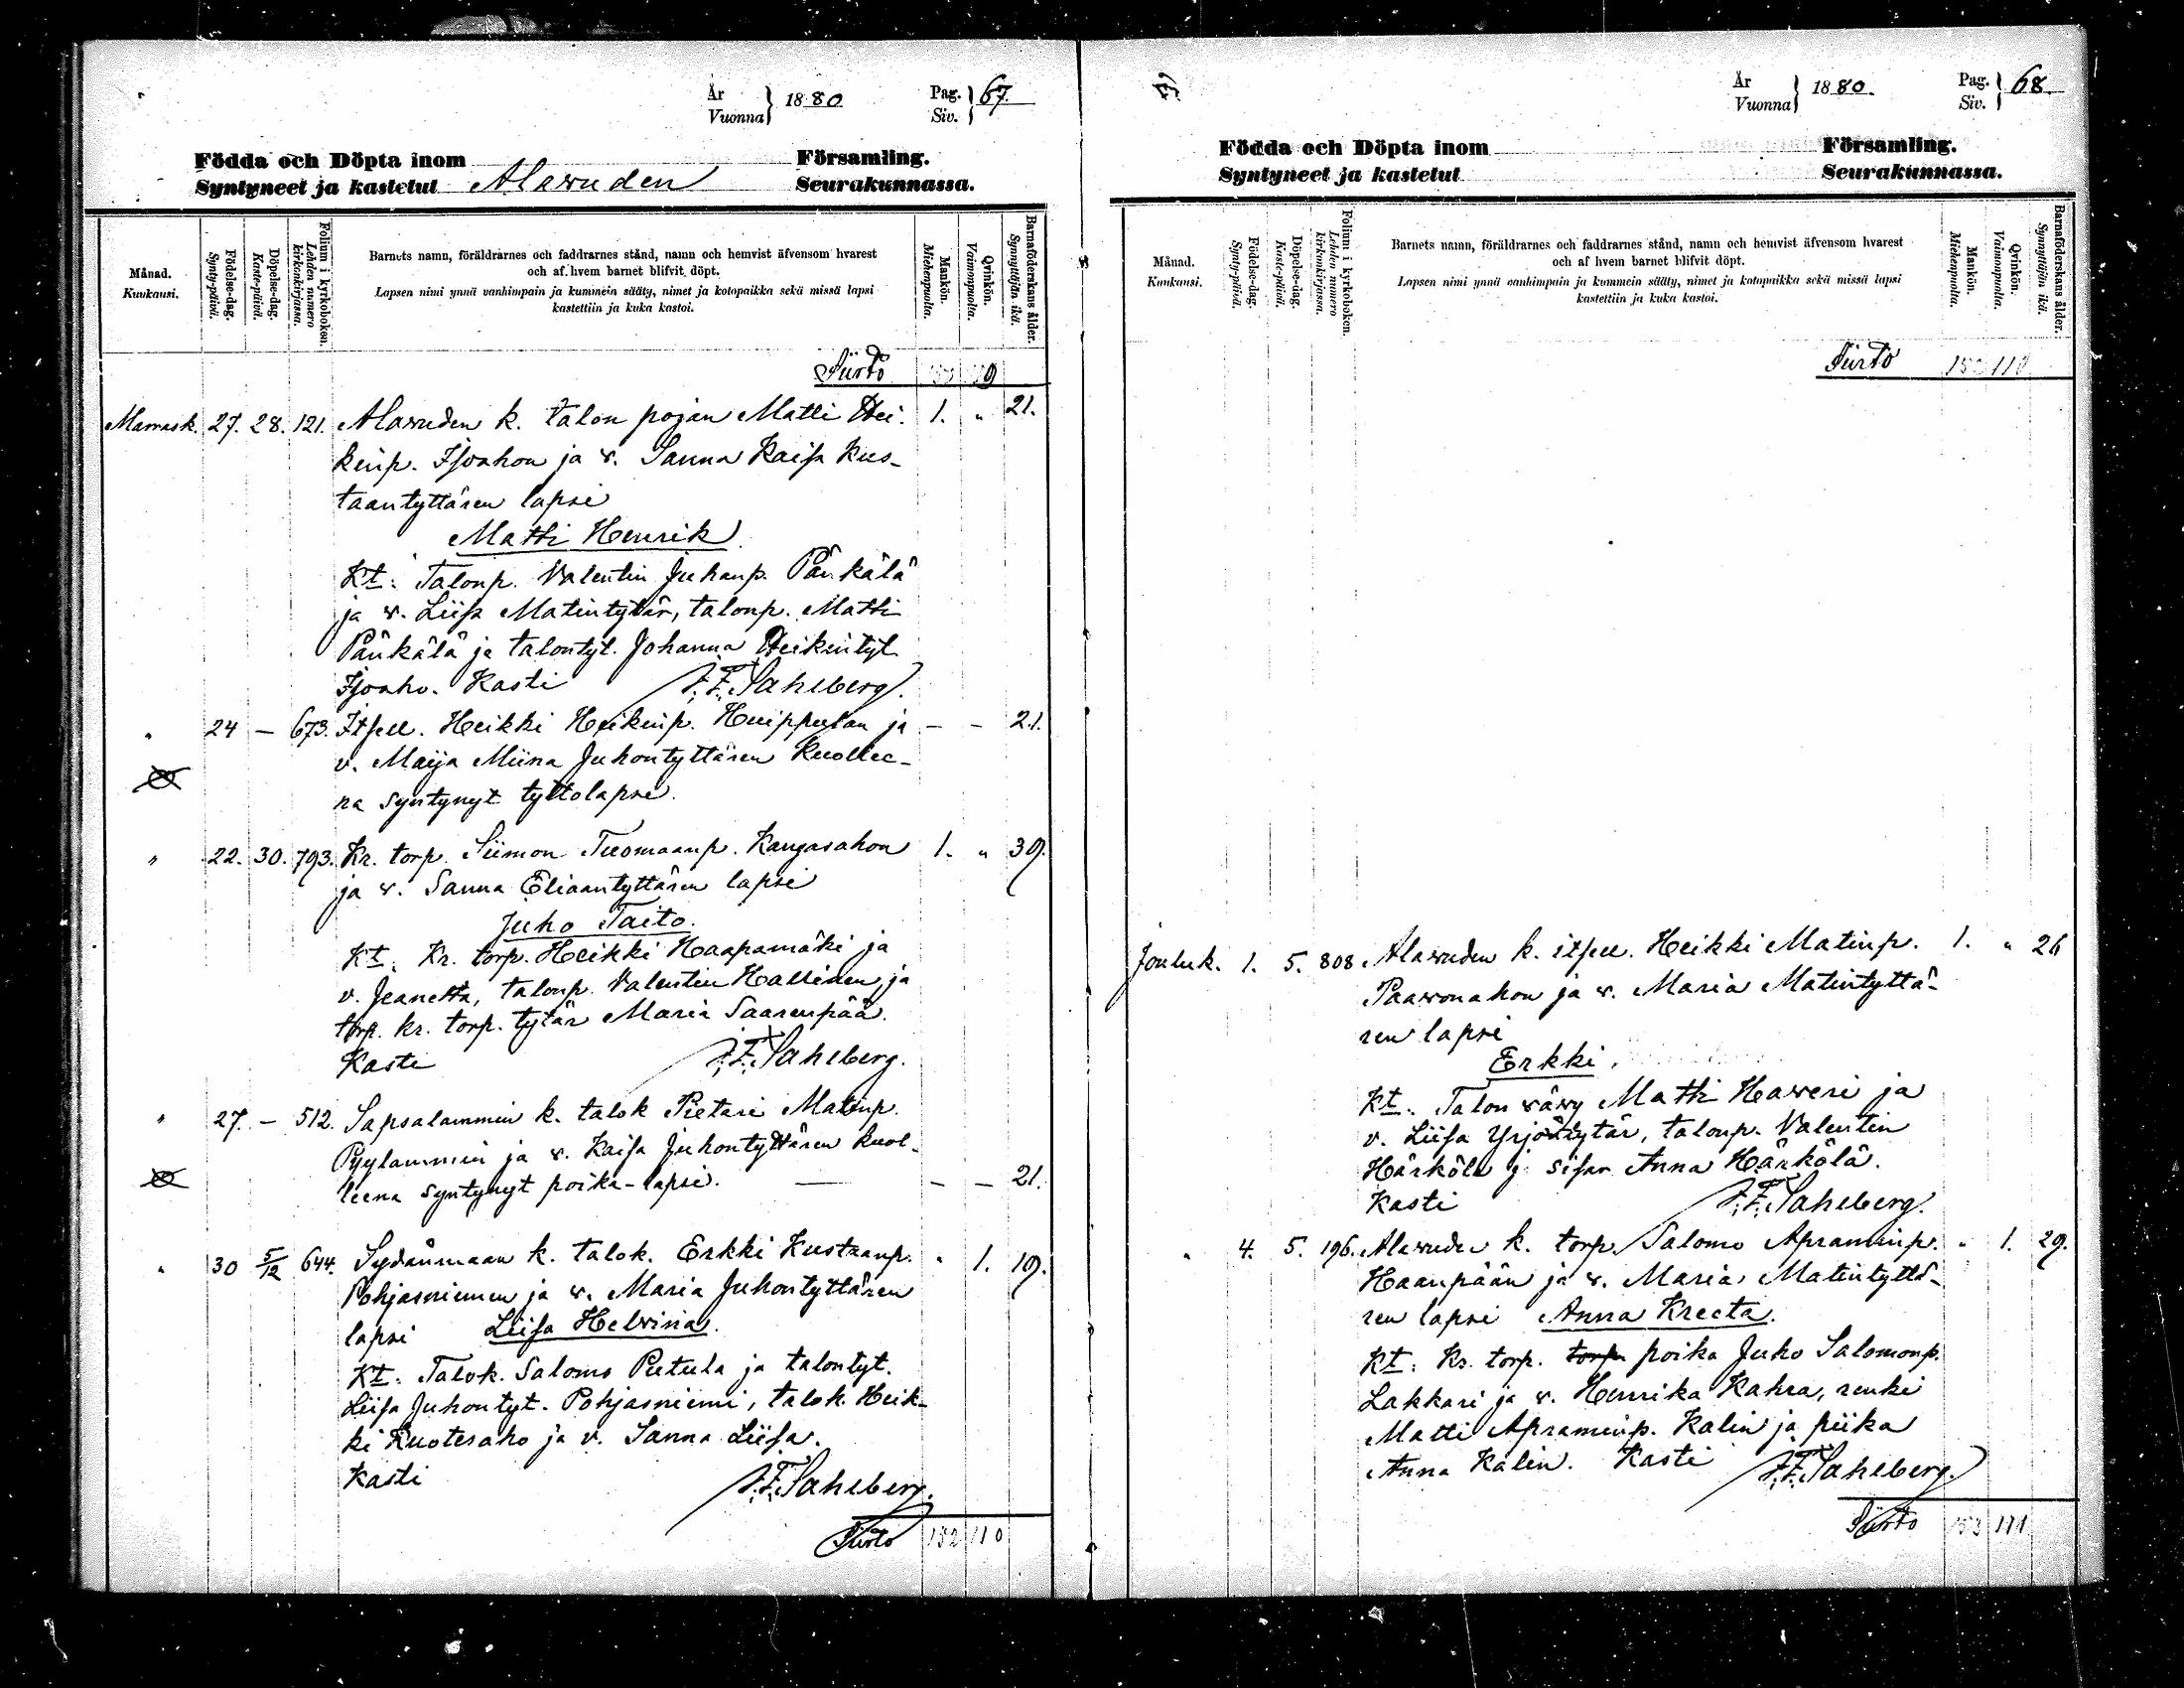 År
Vuonna 1880 Pag. 67.
Siv.
Födda och Döpta inom Församling.
Syntyneet ja kastetut Alawuden Seurakunnassa.
Månad.
Kuukausi.
Födelse-dag.
Synty-päivä.
Döpelse-dag.
Kaste-päivä.
Folium i kyrkoboken.
Lehden numero
kirkonkirjassa.
Barnets namn, föräldrarnes och faddrarnes stånd, namn och hemvist äfvensom hvarest
och af hvem barnet blifvit döpt.
Lapsen nimi ynnä vanhimpain ja kummein sääty, nimet ja kotopaikka sekä missä lapsi
kastettiin ja kuka kastoi.
Mankön.
Miehenpuolta.
Qvinkön.
Vaimonpuolta.
Barnaföderskans ålder.
Synnyttäjän ikä.
Siirto
Marrask. 27. 28. 121. Alawuden k. talon pojan Matti Hei- 1. " 21.
kinp. Isoahon ja v. Sanna Kaisa Kus-
taantyttären lapsi
Matti Henrik
Kt: Talonp. Valentin Juhanp. Pänkälä
ja v. Liisa Matintytär, talonp. Matti
Pänkälä ja talontyt. Johanna Heikintyt.
Isoaho. Kasti J. F. Sahlberg.
" 24 – 673. Itsell. Heikki Heikinp. Huippulan ja – – 21.
v. Maija Miina Juhontyttären kuollee-
na syntynyt tyttolapsi.
" 22. 30. 793. Kr. torp. Siimon Tuomaanp. Kangasahon 1. " 39.
ja v. Sanna Eliaantyttären lapsi
Juho Taito.
Kt: Kr. torp. Heikki Haapamäki ja
v. Jeanetta, talonp. Valentin Hallinen, ja
torp. kr. torp. tytär Maria Saarenpää.
Kasti J. F. Sahlberg.
" 27. – 512. Sapsalammin k. talok Pietari Matinp.
Pyylammin ja v. Kaisa Juhontyttären kuol-
leena syntynyt poika-lapsi. – – – 21.
" 30 5/12 644. Sydänmaan k. talok. Erkki Kustaanp. " 1. 19.
Pohjasniemen ja v. Maria Juhontyttären
lapsi Liisa Helwiina.
Kt: Talok. Salomo Putula ja talontyt.
Liisa Juhontyt. Pohjasniemi, talok. Heik-
ki Kuotesaho ja v. Sanna Liisa.
Kasti J. F. Sahlberg.
Siirto 152 110
År
Vuonna 1880. Pag. 68.
Siv.
Födda och Döpta inom Församling.
Syntyneet ja kastetut Seurakunnassa.
Månad.
Kuukausi.
Födelse-dag.
Synty-päivä.
Döpelse-dag.
Kaste-päivä.
Folium i kyrkoboken.
Lehden numero
kirkonkirjassa.
Barnets namn, föräldrarnes och faddrarnes stånd, namn och hemvist äfvensom hvarest
och af hvem barnet blifvit döpt.
Lapsen nimi ynnä vanhimpain ja kummein sääty, nimet ja kotopaikka sekä missä lapsi
kastettiin ja kuka kastoi.
Mankön.
Miehenpuolta.
Qvinkön.
Vaimonpuolta.
Barnaföderskans ålder.
Synnyttäjän ikä.
Siirto 152 110
Jouluk. 1. 5. 808. Alawuden k. itsell. Heikki Matinp. 1. " 26
Paawonahon ja v. Maria Matintyttä-
ren lapsi
Erkki.
Kt: Talon wäwy Matti Haweri ja
v. Liisa Yrjöntytär, talonp. Valentin
Härkölä j. sisar Anna Härkölä.
Kasti J. F. Sahlberg.
" 4. 5. 196. Alawuden k. torp. Salomo Apraminp. " 1. 29.
Haanpään ja v. Maria Matintyttä-
ren lapsi Anna Kreeta.
Kt: Kr. torp. torp. poika Juho Salomonp.
Lakkari ja v. Henrika Kahra, renki
Matti Apraminp. Kalin ja piika
Anna Kalin. Kasti J. F. Sahlberg.
Siirto 153 111